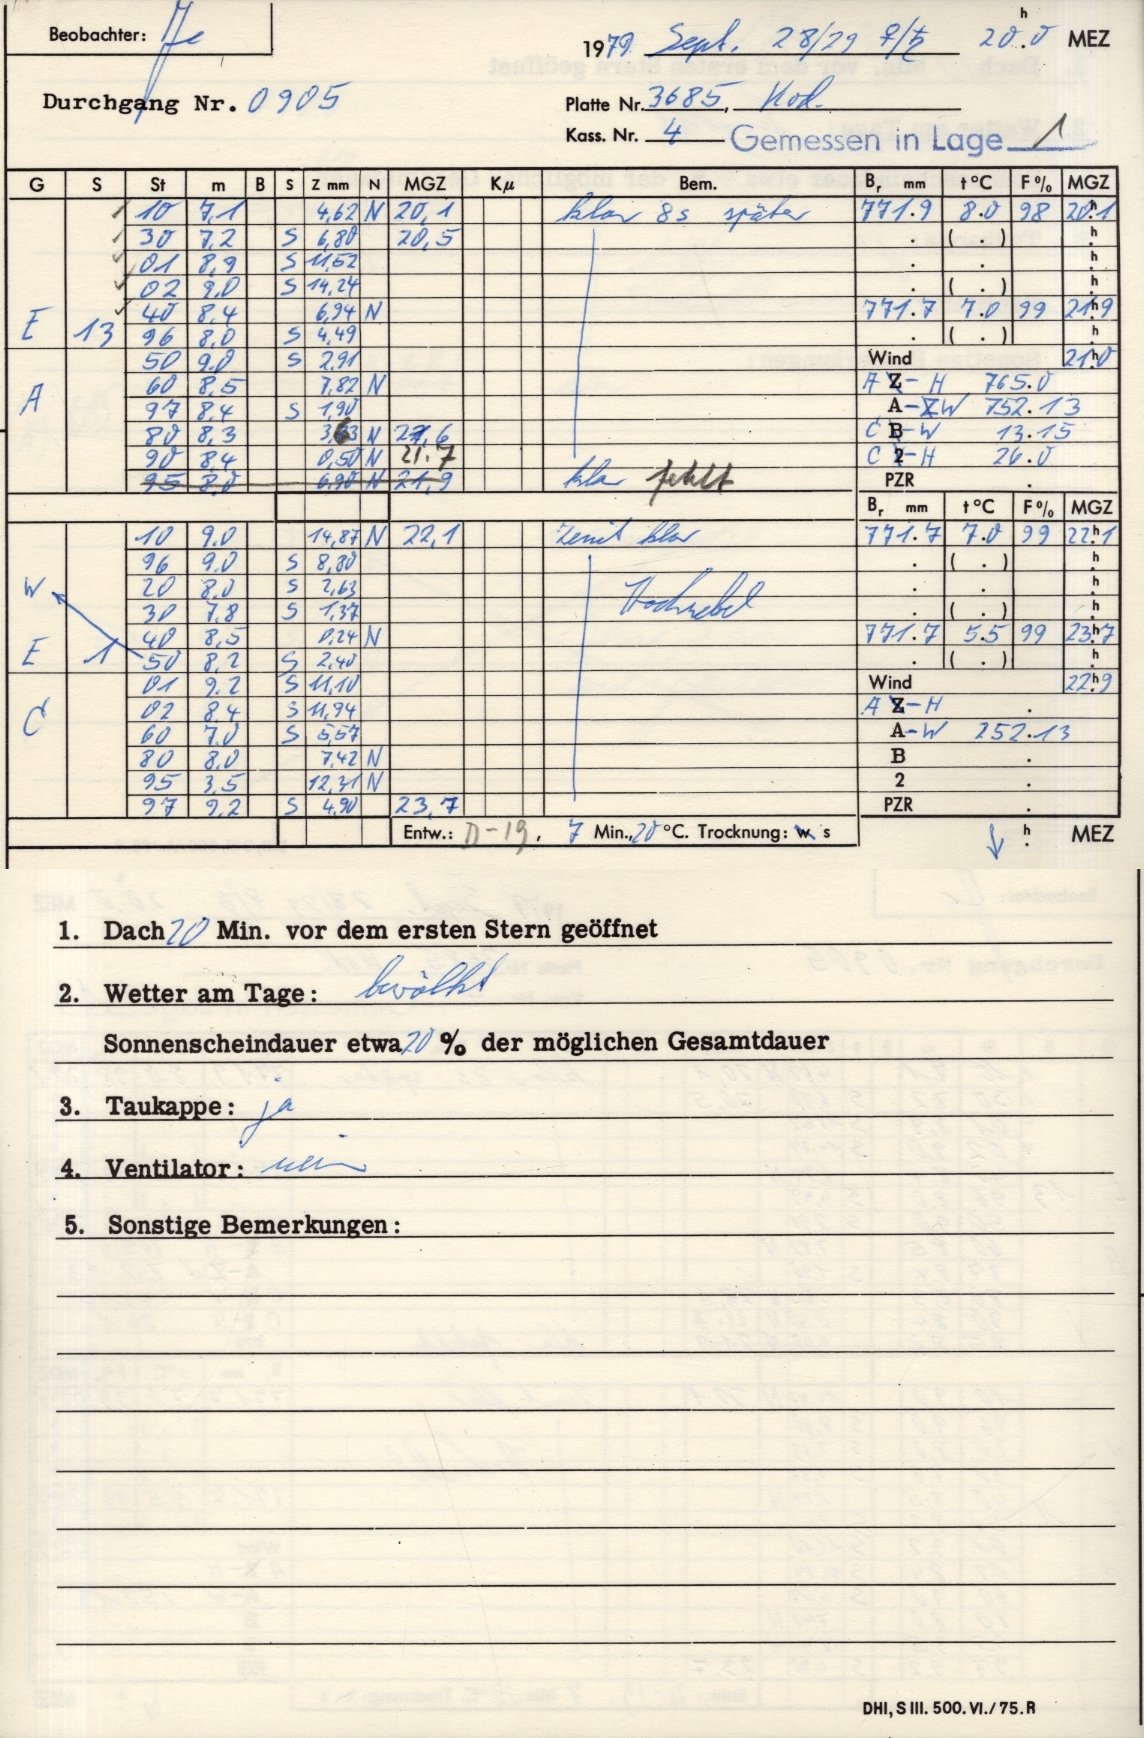 Beobachter: Je
1979 Sept. 28/29 ♀/♄ 20.0 h MEZ
Durchgang Nr. 0905
Platte Nr. 3685, Kod.
Kass. Nr. 4 Gemessen in Lage 1
G S St m B S Z mm N MGZ Kμ Bem. Br mm t°C F% MGZ
10 7,1 4,62 N 20,1 klar 8s später 771.9 8.0 98 20.1 h
30 7,2 S 6,80 20,5 . ( . ) h
01 8,9 S 11,52 . . h
02 9.0 S 14,24 . ( . ) h
40 8.4 6,94 N 771.7 7.0 99 21.9 h
E 13 96 8.0 S 4,49 . ( . ) h
50 9.0 S 2,91 Wind 21.0 h
A 60 8,5 7,82 N A Z-H 765.0
97 8.4 S 1,90 A-ZW 752.13
80 8,3 3,63 N 21,6 C B-W 13.15
90 8.4 0,50 N 21.7 C 2-H 26.0
95 8.0 6,90 N 21,9 klar fehlt PZR .
Br mm t°C F% MGZ
10 9.0 14,87 N 22,1 Zenit klar 771.7 7.0 99 22.1 h
96 9.0 S 8,80 . ( . ) h
W 20 8.0 S 2,63 . . h
30 7.8 S 1,37 Hochnebel . ( . ) h
40 8,5 0,24 N 771.7 5.5 99 23.7 h
E 1 50 8,2 S 2,40 . ( . ) h
01 9.2 S 11,10 Wind 22.9 h
C 02 8.4 S 11,94 A Z-H .
60 7.0 S 5,57 A-W 252.13
80 8.0 7,42 N B .
95 3,5 12,31 N 2 .
97 9,2 S 4,90 23,7 PZR .
Entw.: D-19, 7 Min., 20 °C. Trocknung: w s h . MEZ
1. Dach 20 Min. vor dem ersten Stern geöffnet
2. Wetter am Tage: bewölkt
Sonnenscheindauer etwa 20 % der möglichen Gesamtdauer
3. Taukappe: ja
4. Ventilator: nein
5. Sonstige Bemerkungen:
DHI, S III. 500. VI./75. R